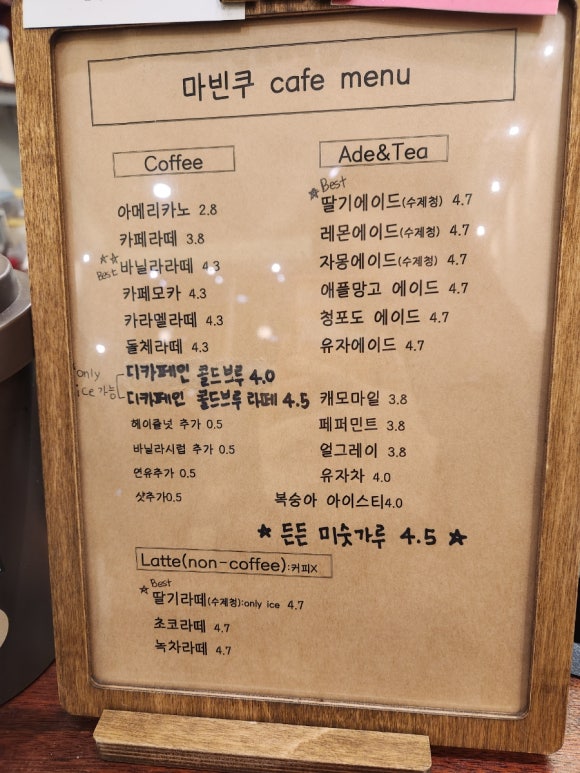 마빈쿠 cafe menu
Coffee
아메리카노 2.8
카페라떼 3.8
★★
Best 바닐라라떼 4.3
카페모카 4.3
카라멜라떼 4.3
돌체라떼 4.3
only ice 가능
디카페인 콜드브루 4.0
디카페인 콜드브루 라떼 4.5
헤이즐넛 추가 0.5
바닐라시럽 추가 0.5
연유추가 0.5
샷추가0.5
Ade&Tea
★Best
딸기에이드(수제청) 4.7
레몬에이드(수제청) 4.7
자몽에이드(수제청) 4.7
애플망고 에이드 4.7
청포도 에이드 4.7
유자에이드 4.7
캐모마일 3.8
페퍼민트 3.8
얼그레이 3.8
유자차 4.0
복숭아 아이스티4.0
★ 든든 미숫가루 4.5 ★
Latte(non-coffee):커피X
★Best
딸기라떼(수제청):only ice 4.7
초코라떼 4.7
녹차라떼 4.7